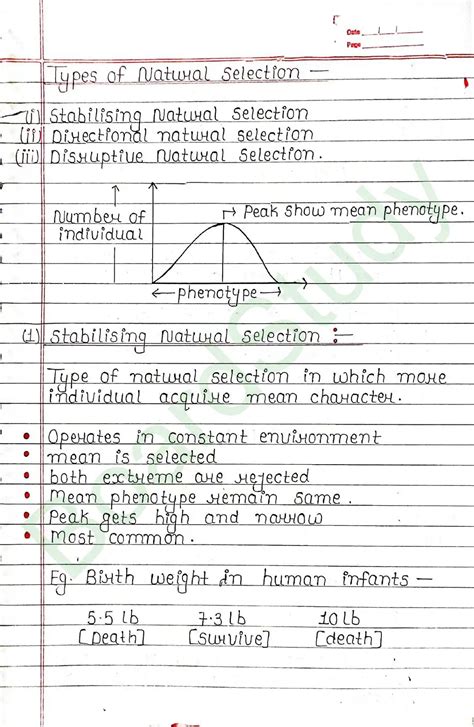 Date / /
Page
Types of Natural Selection —
(i) Stabilising Natural Selection
(ii) Directional natural selection
(iii) Disruptive Natural Selection.
Number of individual
Peak show mean phenotype.
phenotype
(1) Stabilising Natural Selection :-
Type of natural selection in which more
individual acquire mean character.
• Operates in constant environment
• mean is selected
• both extreme are rejected
• Mean phenotype remain same.
• Peak gets high and narrow
• Most common.
Eg. Birth weight in human infants —
5.5 lb 7.3 lb 10 lb
[Death] [Survive] [death]
BoardStudy